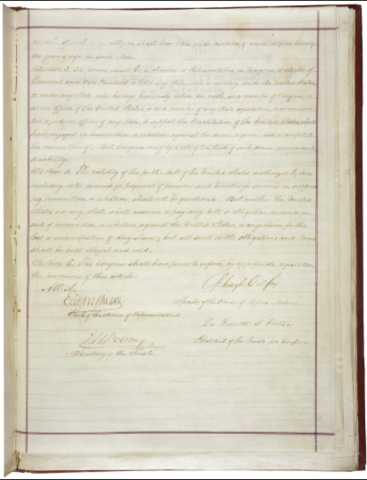 number of male citizens shall bear to the whole number of male citizens twenty
one years of age in such State.
Section 3. No person shall be a Senator or Representative in Congress, or elector of
President and Vice President, or hold any office, civil or military, under the United States,
or under any State, who, having previously taken an oath, as a member of Congress, or
as an officer of the United States, or as a member of any State legislature, or as an
executive or judicial officer of any State, to support the Constitution of the United States, shall
have engaged in insurrection or rebellion against the same, or given aid or comfort to
the enemies thereof. But Congress may by a vote of two thirds of each House, remove such
disability.
Section 4. The validity of the public debt of the United States, authorized by law,
including debts incurred for payment of pensions and bounties for services in suppress-
ing insurrection or rebellion, shall not be questioned. But neither the United
States nor any State shall assume or pay any debt or obligation incurred in
aid of insurrection or rebellion against the United States, or any claim for the
loss or emancipation of any slave; but all such debts, obligations and claims
shall be held illegal and void.
Section 5. The Congress shall have power to enforce, by appropriate legislation,
the provisions of this article.
Attest
Schuyler Colfax
Edwd McPherson
Speaker of the House of Representatives.
Clerk of the House of Representatives.
La Fayette S. Foster
J W Forney
President of the Senate pro tempore.
Secretary of the Senate.